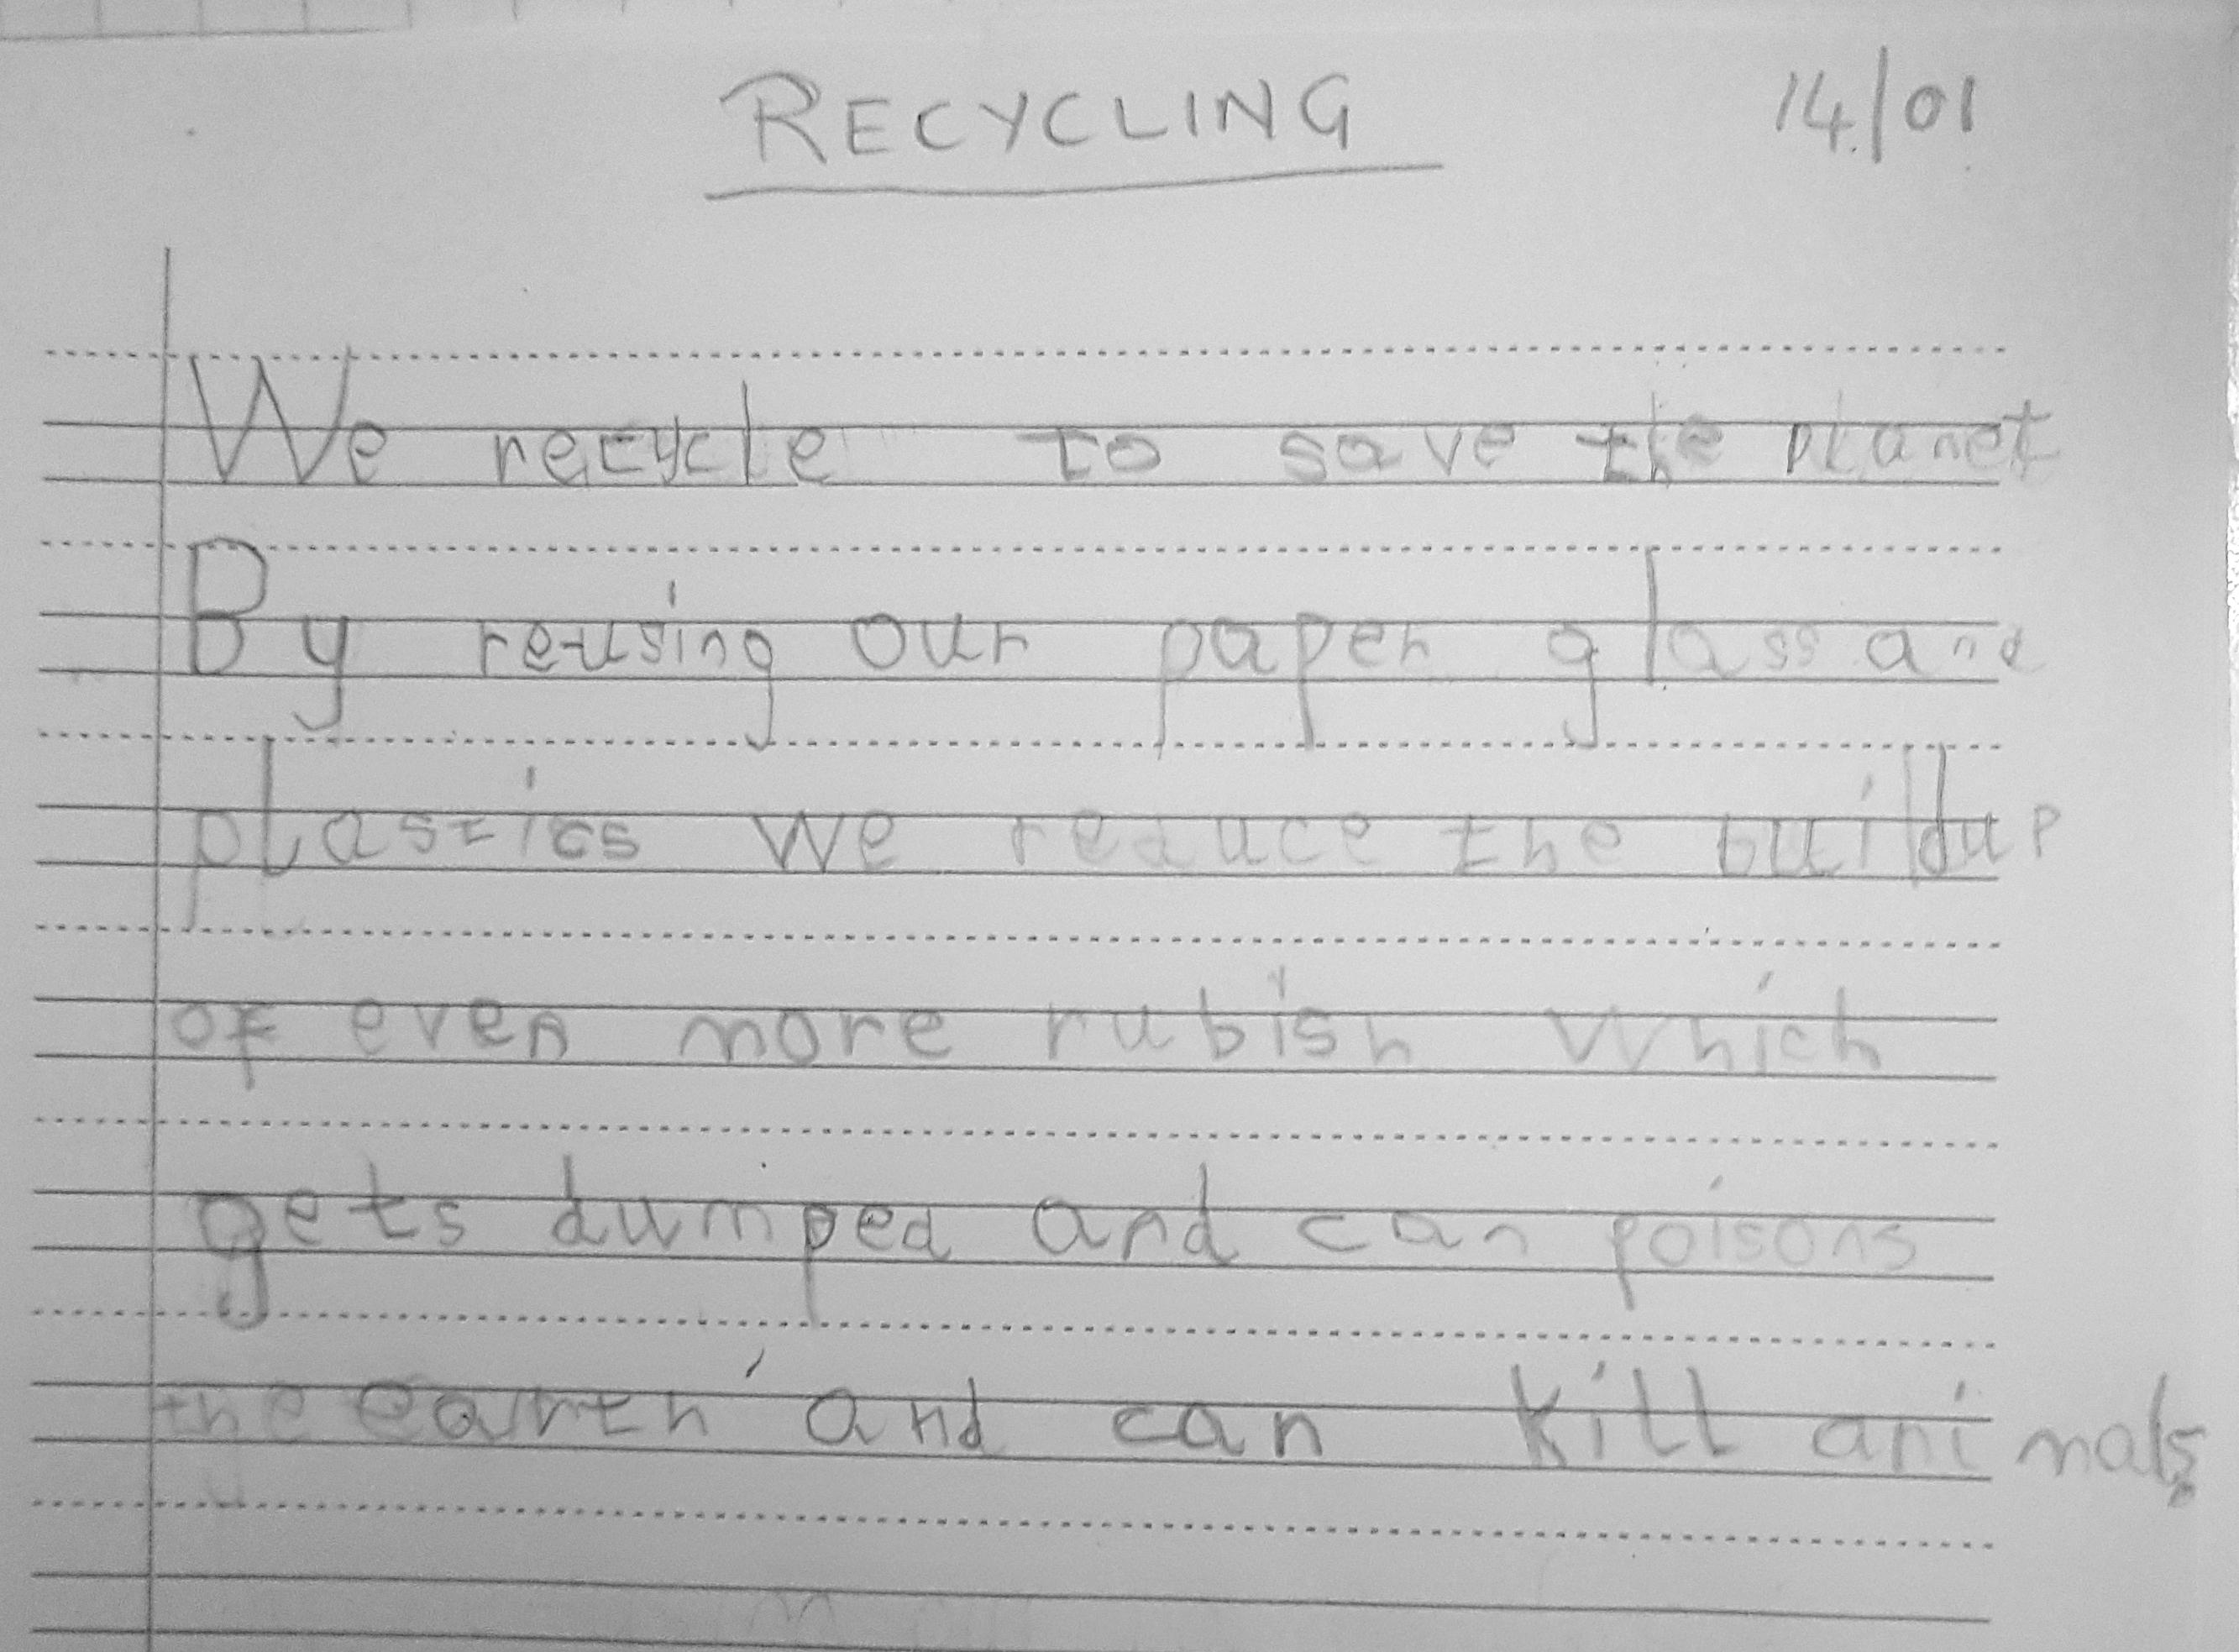 RECYCLING 14/01
We recycle to save the planet
By reusing our paper glass and
plastics we reduce the buildup
of even more rubish which
gets dumped and can poisons
the earth and can kill animals.